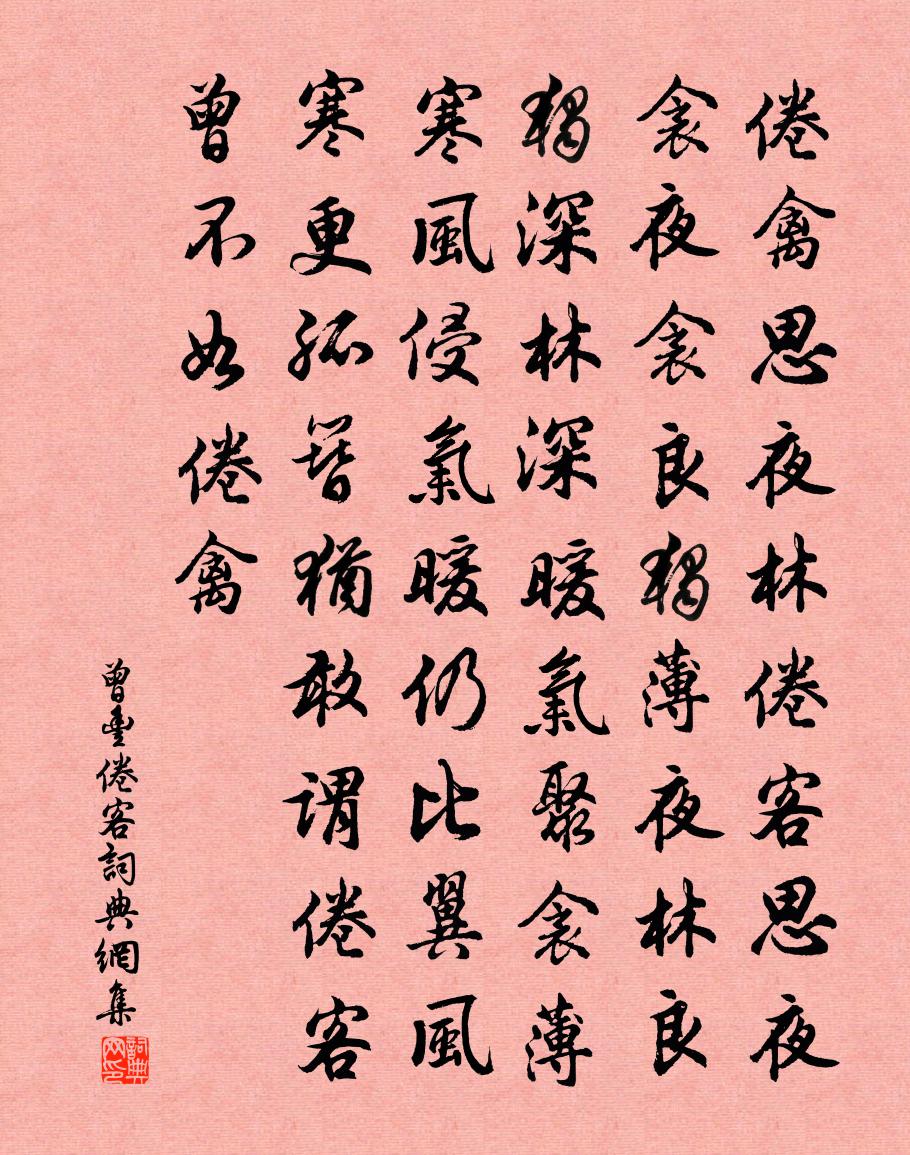 倦禽思夜林倦客思夜
衾夜衾良獨薄夜林良
獨深林深暖氣聚衾薄
寒風侵氣暖仍比翼風
寒更孤簪猶敢謂倦客
曾不如倦禽
曾豐倦客詞典網集
詞典网印